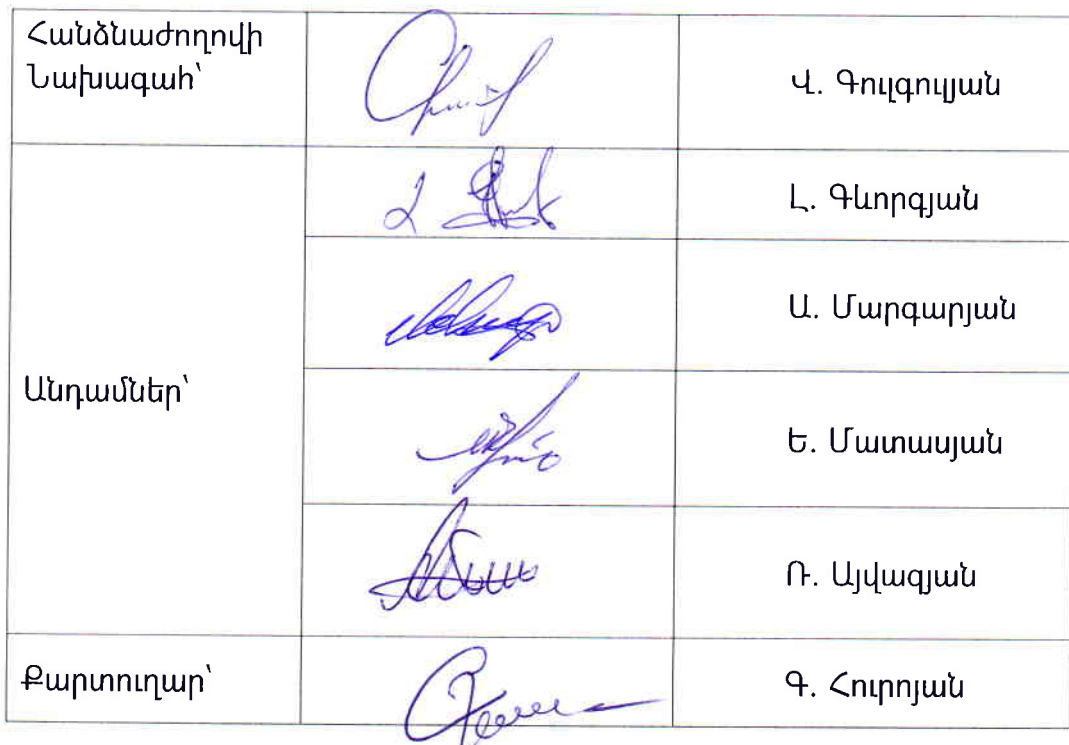 Հանձնաժողովի
Նախագահ՝
Վ. Գուլգուլյան
Անդամներ՝
Լ. Գևորգյան
Ա. Մարգարյան
Ե. Մատասյան
Ռ. Այվազյան
Քարտուղար՝
Գ. Հուրոյան